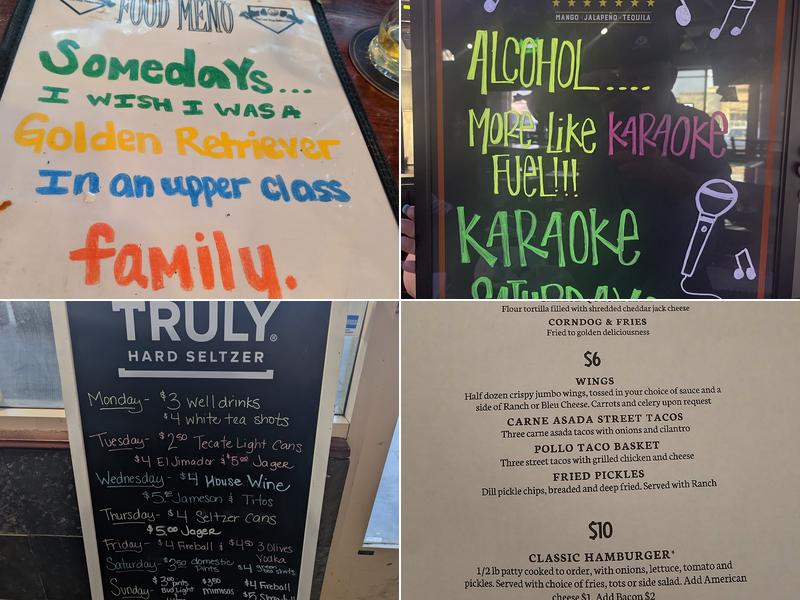 FOOD MENU
SomedaYs...
I WISH I WAS A
Golden Retriever
In an upper class
family.
MANGO · JALAPEÑO · TEQUILA
ALCOHOL....
MORE Like KARAOKE
FUEL!!!
KARAOKE
SATURDAY
TRULY®
HARD SELTZER
Monday - $3 well drinks
$4 white tea shots
Tuesday - $2.50 Tecate Light Cans
$4 El Jimador & $5.00 Jager
Wednesday - $4 House Wine
$5.00 Jameson & Titos
Thursday - $4 Seltzer cans
$5.00 Jager
Friday - $4 Fireball & $4.50 3 Olives
Vodka
Saturday - $3.50 domestic
pints $4 green tea shots
Sunday - $3.00 pints
Bud Light
$3.50
mimosas
$4 Fireball
Flour tortilla filled with shredded cheddar jack cheese
CORNDOG & FRIES
Fried to golden deliciousness
$6
WINGS
Half dozen crispy jumbo wings, tossed in your choice of sauce and a
side of Ranch or Bleu Cheese. Carrots and celery upon request
CARNE ASADA STREET TACOS
Three carne asada tacos with onions and cilantro
POLLO TACO BASKET
Three street tacos with grilled chicken and cheese
FRIED PICKLES
Dill pickle chips, breaded and deep fried. Served with Ranch
$10
CLASSIC HAMBURGER*
1/2 lb patty cooked to order, with onions, lettuce, tomato and
pickles. Served with choice of fries, tots or side salad. Add American
cheese $1, Add Bacon $2